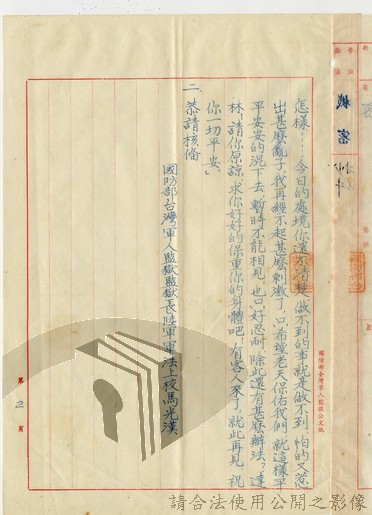 機密
怎樣……今日的處境你還不清楚，做不到的事就是做不到，怕的又惹
出甚麼亂子，我再經不起甚麼刺激了，只希望老天保佑我們，就這樣平
平安安的混下去，暫時不能相見，也只好忍耐，除此還有甚麼辦法？逢
林，請你原諒，求你好好的保重你的身體吧！有客人來了，就此再見，祝
你一切平安。
二、恭請核備
國防部台灣軍人監獄監獄長陸軍軍法上校馬光漢
國防部臺灣軍人監獄公文紙
第2頁
請合法使用公開之影像